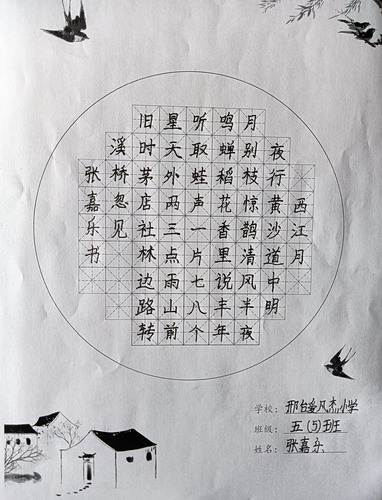 西江月
夜行黄沙道中 明
月别枝惊鹊清风半夜
鸣蝉稻花香里说丰年
听取蛙声一片七八个
星天外两三点雨山前
旧时茅店社林边路转
溪桥忽见
张嘉乐书
学校：邢台 小学
班级：五(5)班
姓名：张嘉乐